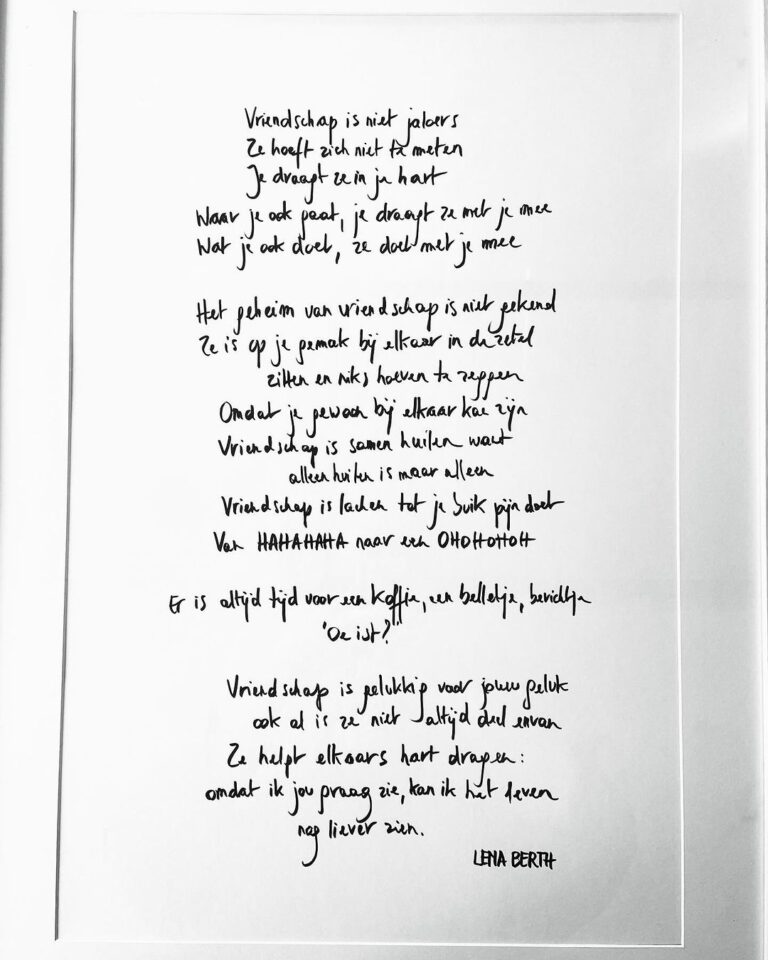 Vriendschap is niet jaloers
Ze hoeft zich niet te meten
Je draagt ze in je hart
Waar je ook gaat, je draagt ze met je mee
Wat je ook doet, ze doet met je mee
Het geheim van vriendschap is niet gekend
Ze is op je gemak bij elkaar in de zetel
zitten en niks hoeven te zeggen
Omdat je gewoon bij elkaar kan zijn
Vriendschap is samen huilen want
alleen huilen is maar alleen
Vriendschap is lachen tot je buik pijn doet
Van HAHAHAHA naar een OHOHOHOH
Er is altijd tijd voor een koffie, een belletje, berichtje
'Oe ist?'
Vriendschap is gelukkig voor jouw geluk
ook al is ze niet altijd deel ervan
Ze helpt elkaars hart dragen:
omdat ik jou graag zie, kan ik het leven
nog liever zien.
LENA BERTH